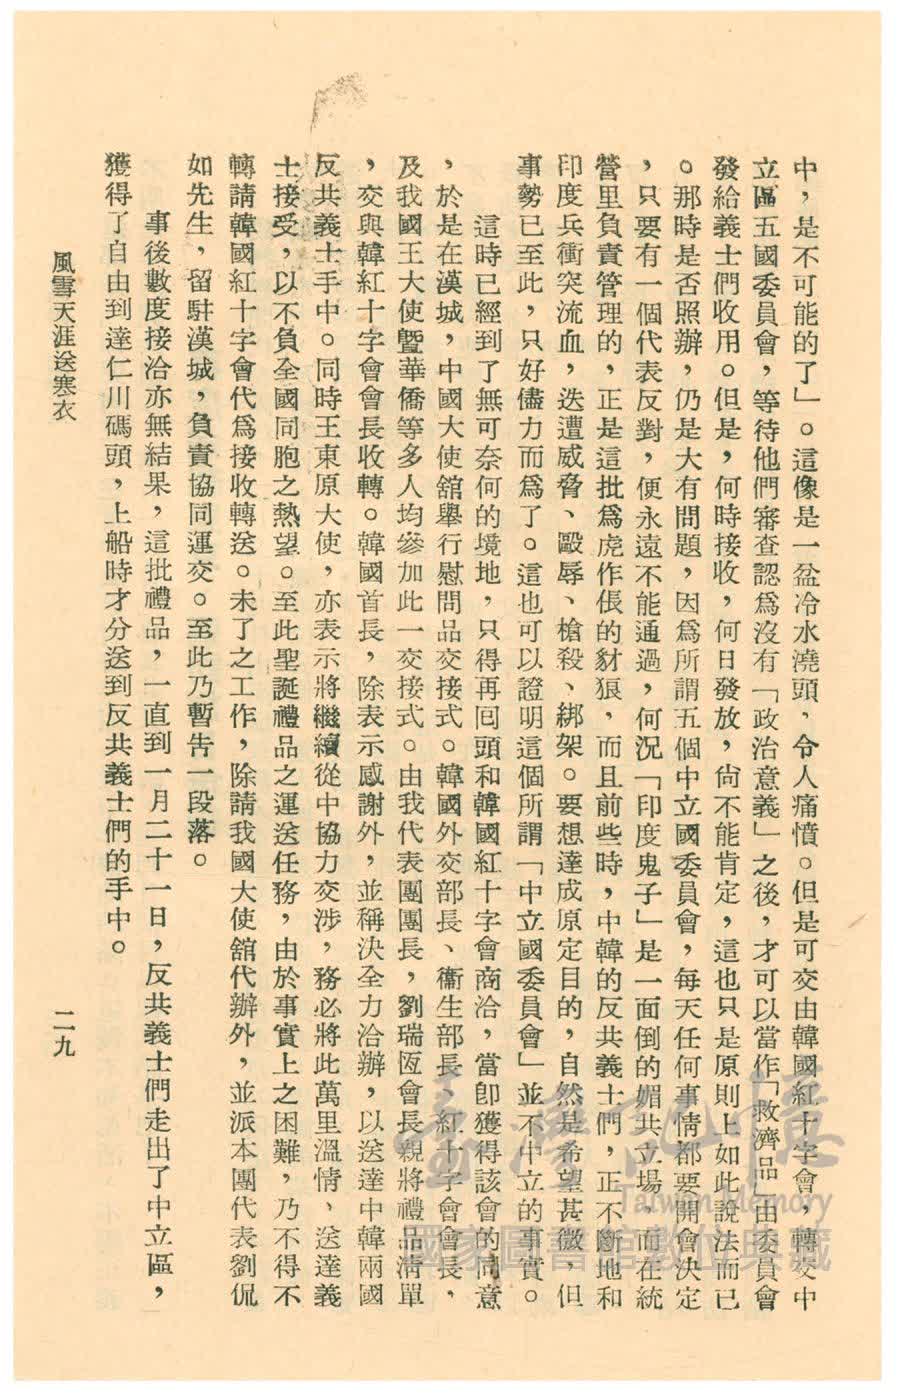 中，是不可能的了」。這像是一盆冷水澆頭，令人痛憤。但是可交由韓國紅十字會，轉交中
立區五國委員會，等待他們審查認爲沒有「政治意義」之後，才可以當作「救濟品」由委員會
發給義士們收用。但是，何時接收，何日發放，尙不能肯定，這也只是原則上如此說法而已
。那時是否照辦，仍是大有問題，因爲所謂五個中立國委員會，每天任何事情都要開會決定
，只要有一個代表反對，便永遠不能通過，何況「印度鬼子」是一面倒的媚共立場，而在統
營里負責管理的，正是這批爲虎作倀的豺狼，而且前些時，中韓的反共義士們，正不斷地和
印度兵衝突流血，迭遭威脅、毆辱、槍殺、綁架。要想達成原定目的，自然是希望甚微，但
事勢已至此，只好儘力而爲了。這也可以證明這個所謂「中立國委員會」並不中立的事實。
這時已經到了無可奈何的境地，只得再回頭和韓國紅十字會商洽，當卽獲得該會的同意
，於是在漢城，中國大使舘舉行慰問品交接式。韓國外交部長、衞生部長、紅十字會會長，
及我國王大使暨華僑等多人均參加此一交接式。由我代表團團長，劉瑞恆會長親將禮品淸單
，交與韓紅十字會會長收轉。韓國首長，除表示感謝外，並稱決全力洽辦，以送達中韓兩國
反共義士手中。同時王東原大使，亦表示將繼續從中協力交涉，務必將此萬里溫情，送達義
士接受，以不負全國同胞之熱望。至此聖誕禮品之運送任務，由於事實上之困難，乃不得不
轉請韓國紅十字會代爲接收轉送。未了之工作，除請我國大使舘代辦外，並派本團代表劉侃
如先生，留駐漢城，負責協同運交。至此乃暫告一段落。
事後數度接洽亦無結果，這批禮品，一直到一月二十一日，反共義士們走出了中立區，
獲得了自由到達仁川碼頭，上船時才分送到反共義士們的手中。
風雪天涯送寒衣
二九
臺灣記憶
Taiwan Memory
國家圖書館數位典藏